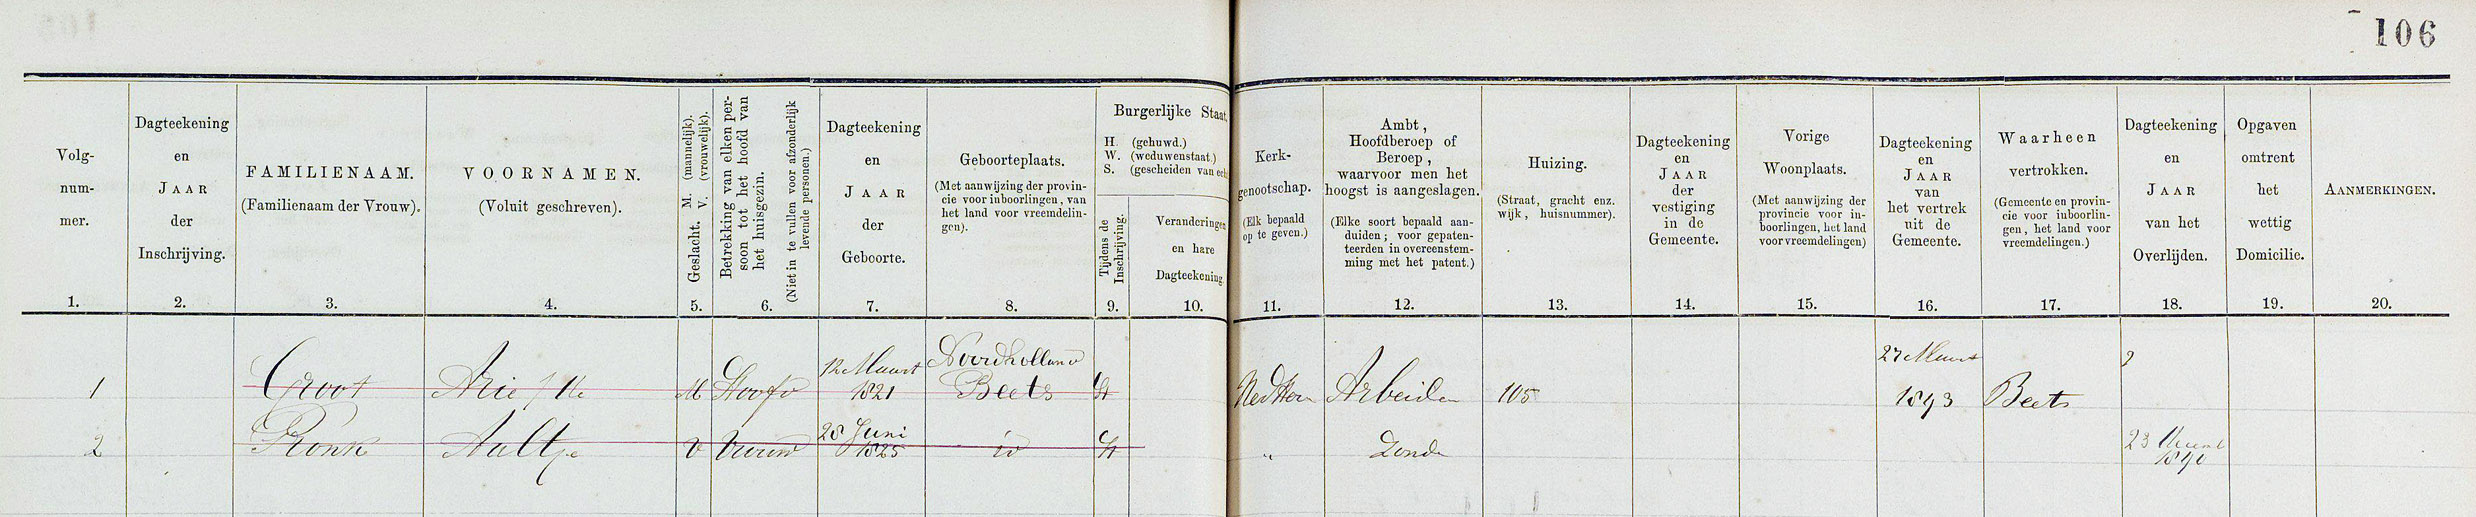 106
Volg-
num-
mer.
1.
Dagteekening
en
JAAR
der
Inschrijving.
2.
FAMILIENAAM.
(Familienaam der Vrouw).
3.
VOORNAMEN.
(Voluit geschreven).
4.
Geslacht. M. (mannelijk).
V. (vrouwelijk).
5.
Betrekking van elken per-
soon tot het hoofd van
het huisgezin.
(Niet in te vullen voor afzonderlijk
levende personen.)
6.
Dagteekening
en
JAAR
der
Geboorte.
7.
Geboorteplaats.
(Met aanwijzing der provin-
cie voor inboorlingen, van
het land voor vreemdelin-
gen).
8.
Burgerlijke Staat.
H. (gehuwd.)
W. (weduwenstaat.)
S. (gescheiden van
Tijdens de
Inschrijving.
9.
Veranderingen
en hare
Dagteekening.
10.
Kerk-
genootschap.
(Elk bepaald
op te geven.)
11.
Ambt,
Hoofdberoep of
Beroep,
waarvoor men het
hoogst is aangeslagen.
(Elke soort bepaald aan-
duiden; voor gepaten-
teerden in overeenstem-
ming met het patent.)
12.
Huizing.
(Straat, gracht enz.
wijk, huisnummer).
13.
Dagteekening
en
JAAR
der
vestiging
in de
Gemeente.
14.
Vorige
Woonplaats.
(Met aanwijzing der
provincie voor in-
boorlingen, het land
voor vreemdelingen)
15.
Dagteekening
en
JAAR
van
het vertrek
uit de
Gemeente.
16.
Waarheen
vertrokken.
(Gemeente en provin-
cie voor inboorlin-
gen, het land voor
vreemdelingen.)
17.
Dagteekening
en
JAAR
van het
Overlijden.
18.
Opgaven
omtrent
het
wettig
Domicilie.
19.
AANMERKINGEN.
20.
12 Maart Noordholland 27 Maart
1 Groot Arie M Hoofd 1821 Beets H Ned Her Arbeider 105 1893 Beets
28 Juni
2 Ronk Aaltje V Vrouw 1825 id H " Zonder 23
1890